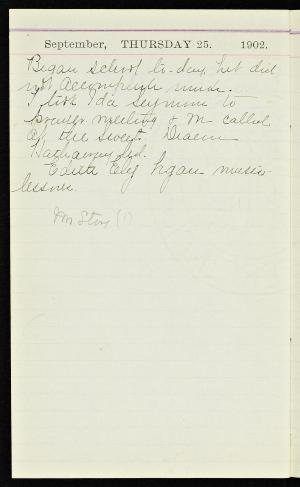 September, THURSDAY 25. 1902.
Began school to-day but did
not accomplish much.
I took Ida Seymour to
prayer meeting & M. called
at the sweet. Deacon
Hathaway led.
Edith Ely began music
lessons.